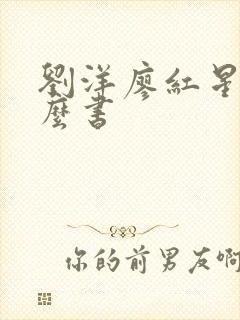 劉洋廖紅星
麼書
你的前男友啊